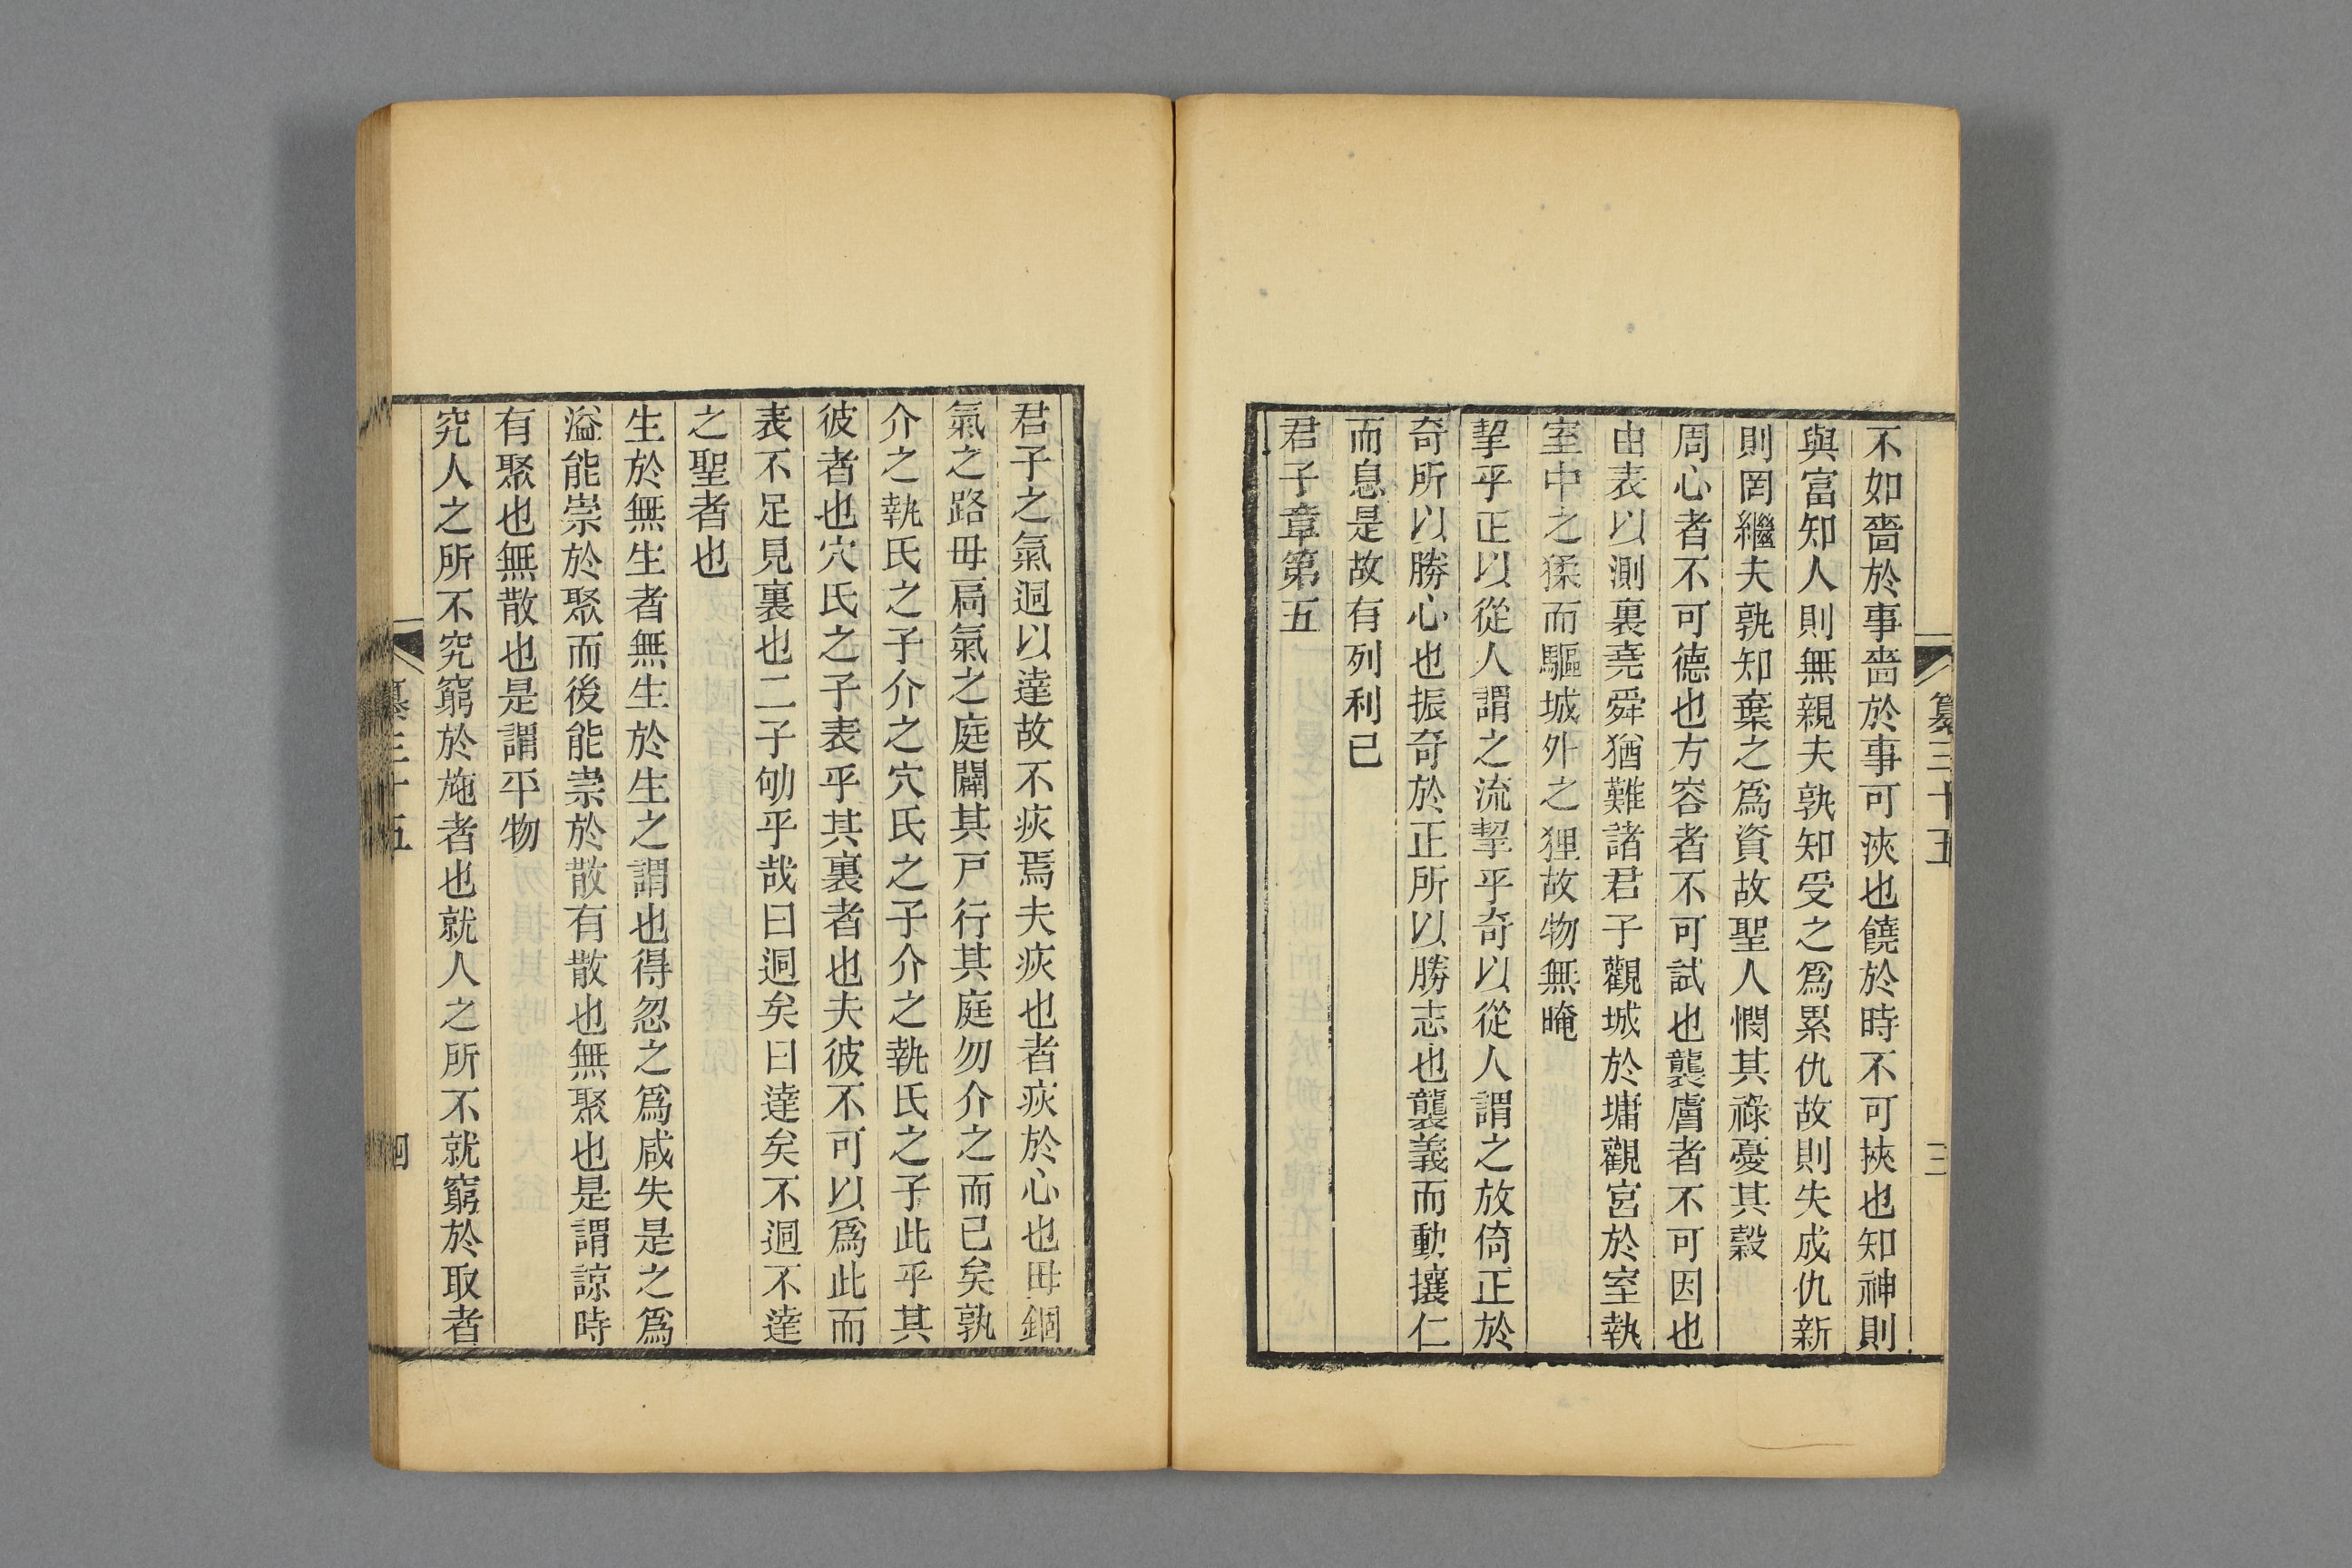 纂三十五
三
不如嗇於事嗇於事可浹也饒於時不可挾也知神則
與富知人則無親夫孰知受之爲累仇故則失成仇新
則罔繼夫孰知棄之爲資故聖人憫其祿憂其穀
周心者不可德也方容者不可試也襲膚者不可因也
由表以測裏堯舜猶難諸君子觀城於墉觀宮於室執
室中之猱而驅城外之狸故物無晻
挈乎正以從人謂之流挈乎奇以從人謂之放倚正於
奇所以勝心也振奇於正所以勝志也襲義而動攘仁
而息是故有列利已
君子章第五
君子之氣迥以達故不疢焉夫疢也者疢於心也毋錮
氣之路毋扃氣之庭闢其戸行其庭勿介之而已矣孰
介之執氏之子介之穴氏之子介之執氏之子此乎其
彼者也穴氏之子表乎其裏者也夫彼不可以爲此而
表不足見裏也二子劬乎哉曰迥矣曰達矣不迥不達
之聖者也
生於無生者無生於生之謂也得忽之爲咸失是之爲
溢能崇於聚而後能崇於散有散也無聚也是謂諒時
有聚也無散也是謂平物
究人之所不究窮於施者也就人之所不就窮於取者
纂三十五
四